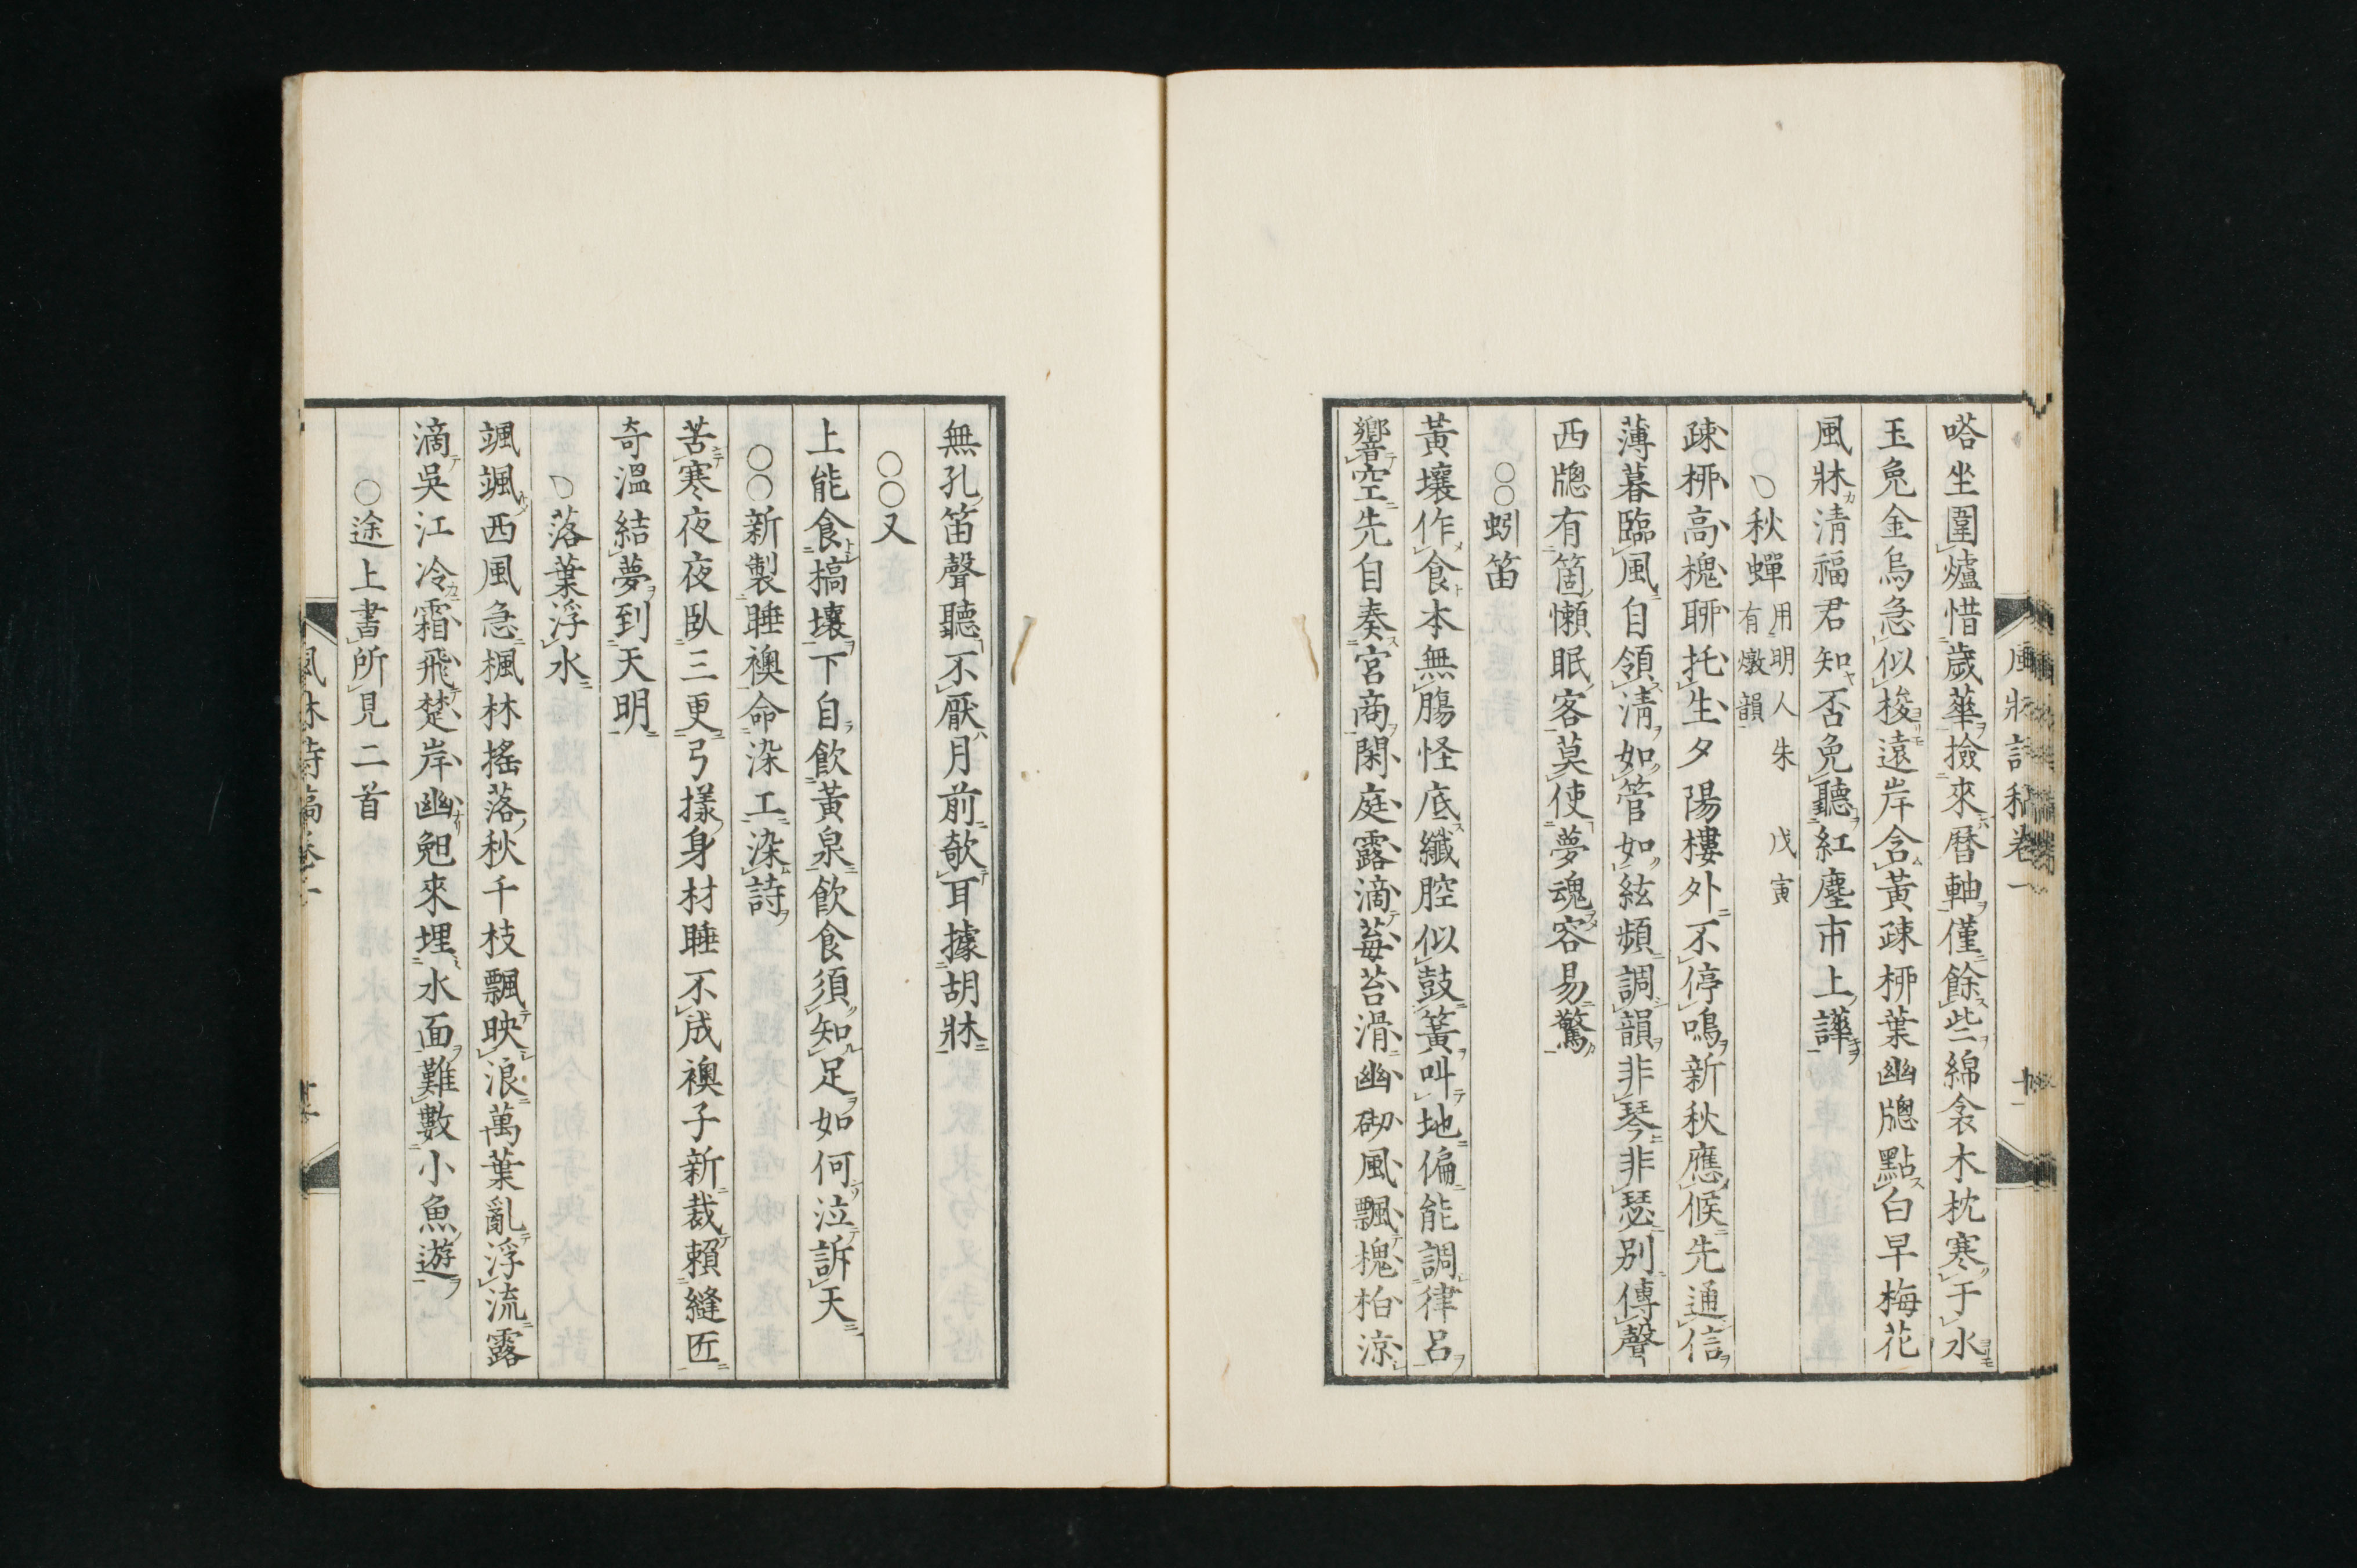 嗒坐圍爐惜歲華撿來曆軸僅餘些綿衾木枕寒于水
玉兔金烏急似梭遠岸含黃疎桺葉幽牕點白早梅花
風牀清福君知否免聽紅塵市上譁
〇秋蟬用明人朱戊寅有燉韻
疎桺高槐聊托生夕陽樓外不停鳴新秋應候先通信
薄暮臨風自領清如管如絃頻調韻非琴非瑟別傳聲
西牕有箇懶眠客莫使夢魂容易驚
〇〇蚓笛
黃壤作食本無膓怪底纖腔似鼓簧叫地偏能調律呂
響空先自奏宮商閑庭露滴莓苔滑幽砌風飄槐柏涼
無孔笛聲聽不厭月前欹耳據胡牀
〇〇又
上能食槁壤下自飲黃泉飲食須知足如何泣訴天
〇〇新製睡襖命染工染詩
苦寒夜夜臥三更弓樣身材睡不成襖子新裁賴縫匠
奇溫結夢到天明
〇落葉浮水
颯颯西風急楓林搖落秋千枝飄映浪萬葉亂浮流露
滴吳江冷霜飛楚岸幽舥來埋水面難數小魚遊
〇途上書所見二首